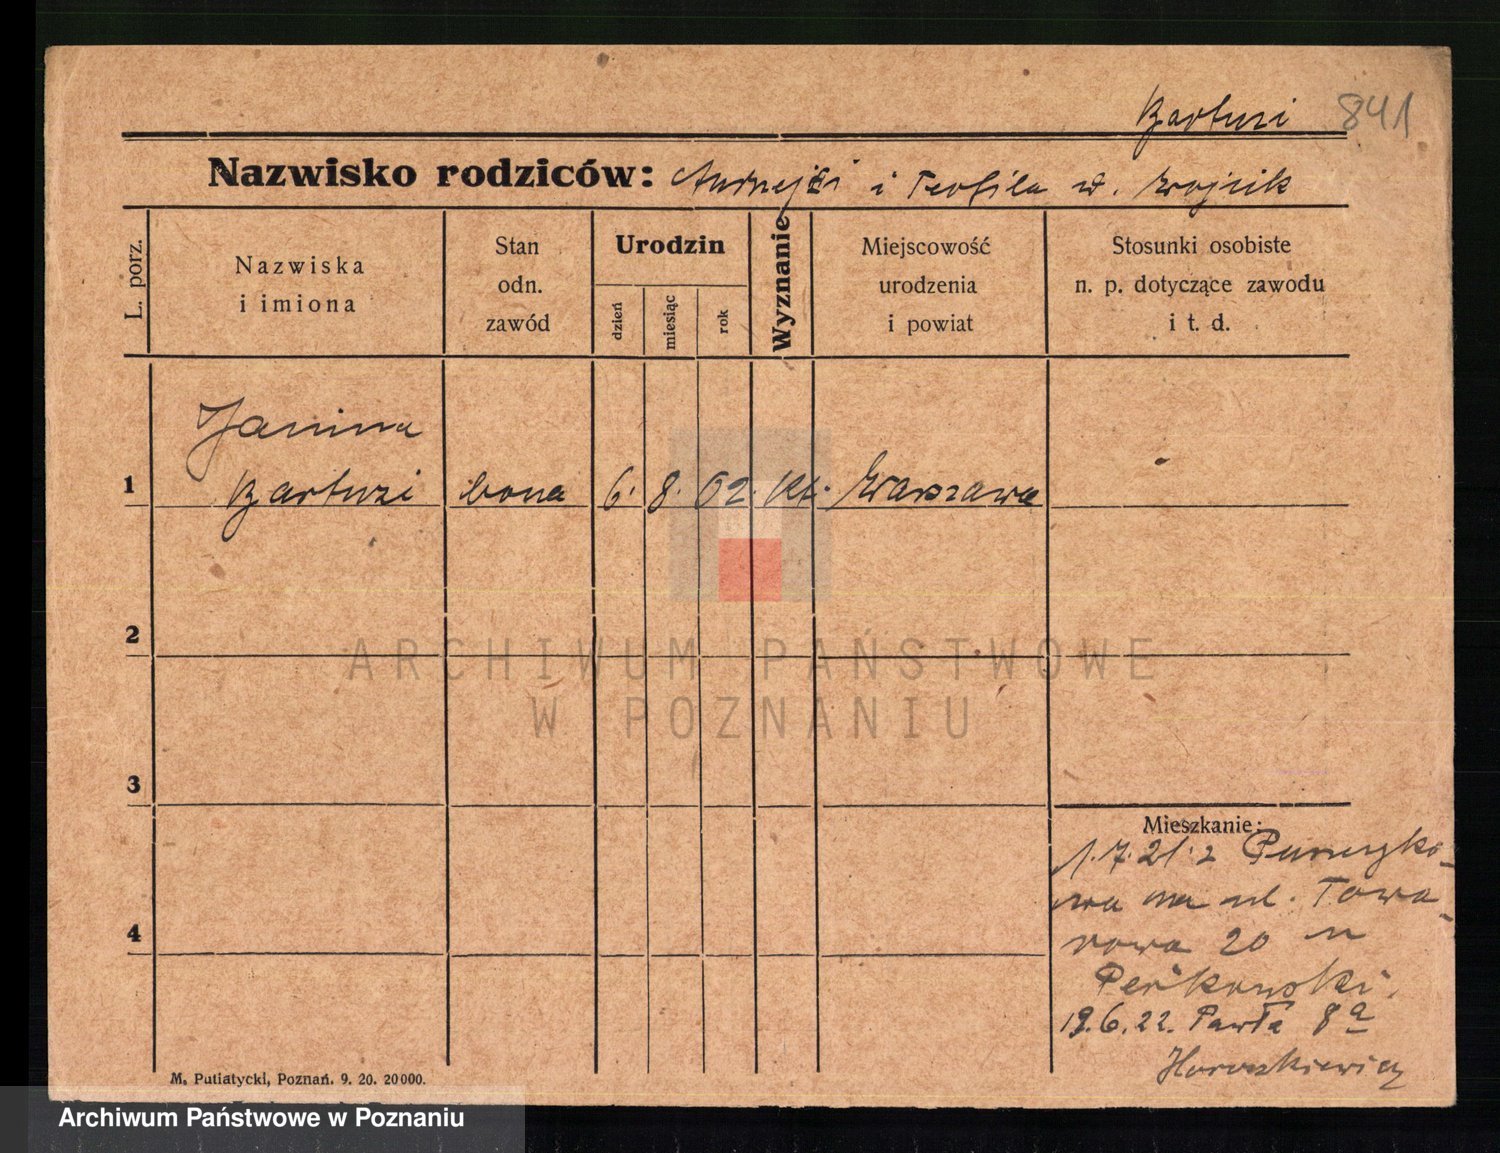 Bartuzi 841
Nazwisko rodziców: Andrzej i Teofila d. Wojcik
L. porz.
Nazwiska
i imiona
Stan
odn.
zawód
Urodzin
dzień
miesiąc
rok
Wyznanie
Miejscowość
urodzenia
i powiat
Stosunki osobiste
n. p. dotyczące zawodu
i t. d.
Janina
1 Bartuzi bona 6. 8. 02. kt. Warszawa
2
ARCHIWUM PAŃSTWOWE
W POZNANIU
3
Mieszkanie:
1.7.21. z
na ul. Towa-
4
rowa 20
19.6.22. Pawła 8a
Horoszkiewicz
M. Putiatycki, Poznań. 9. 20. 20000.
Archiwum Państwowe w Poznaniu